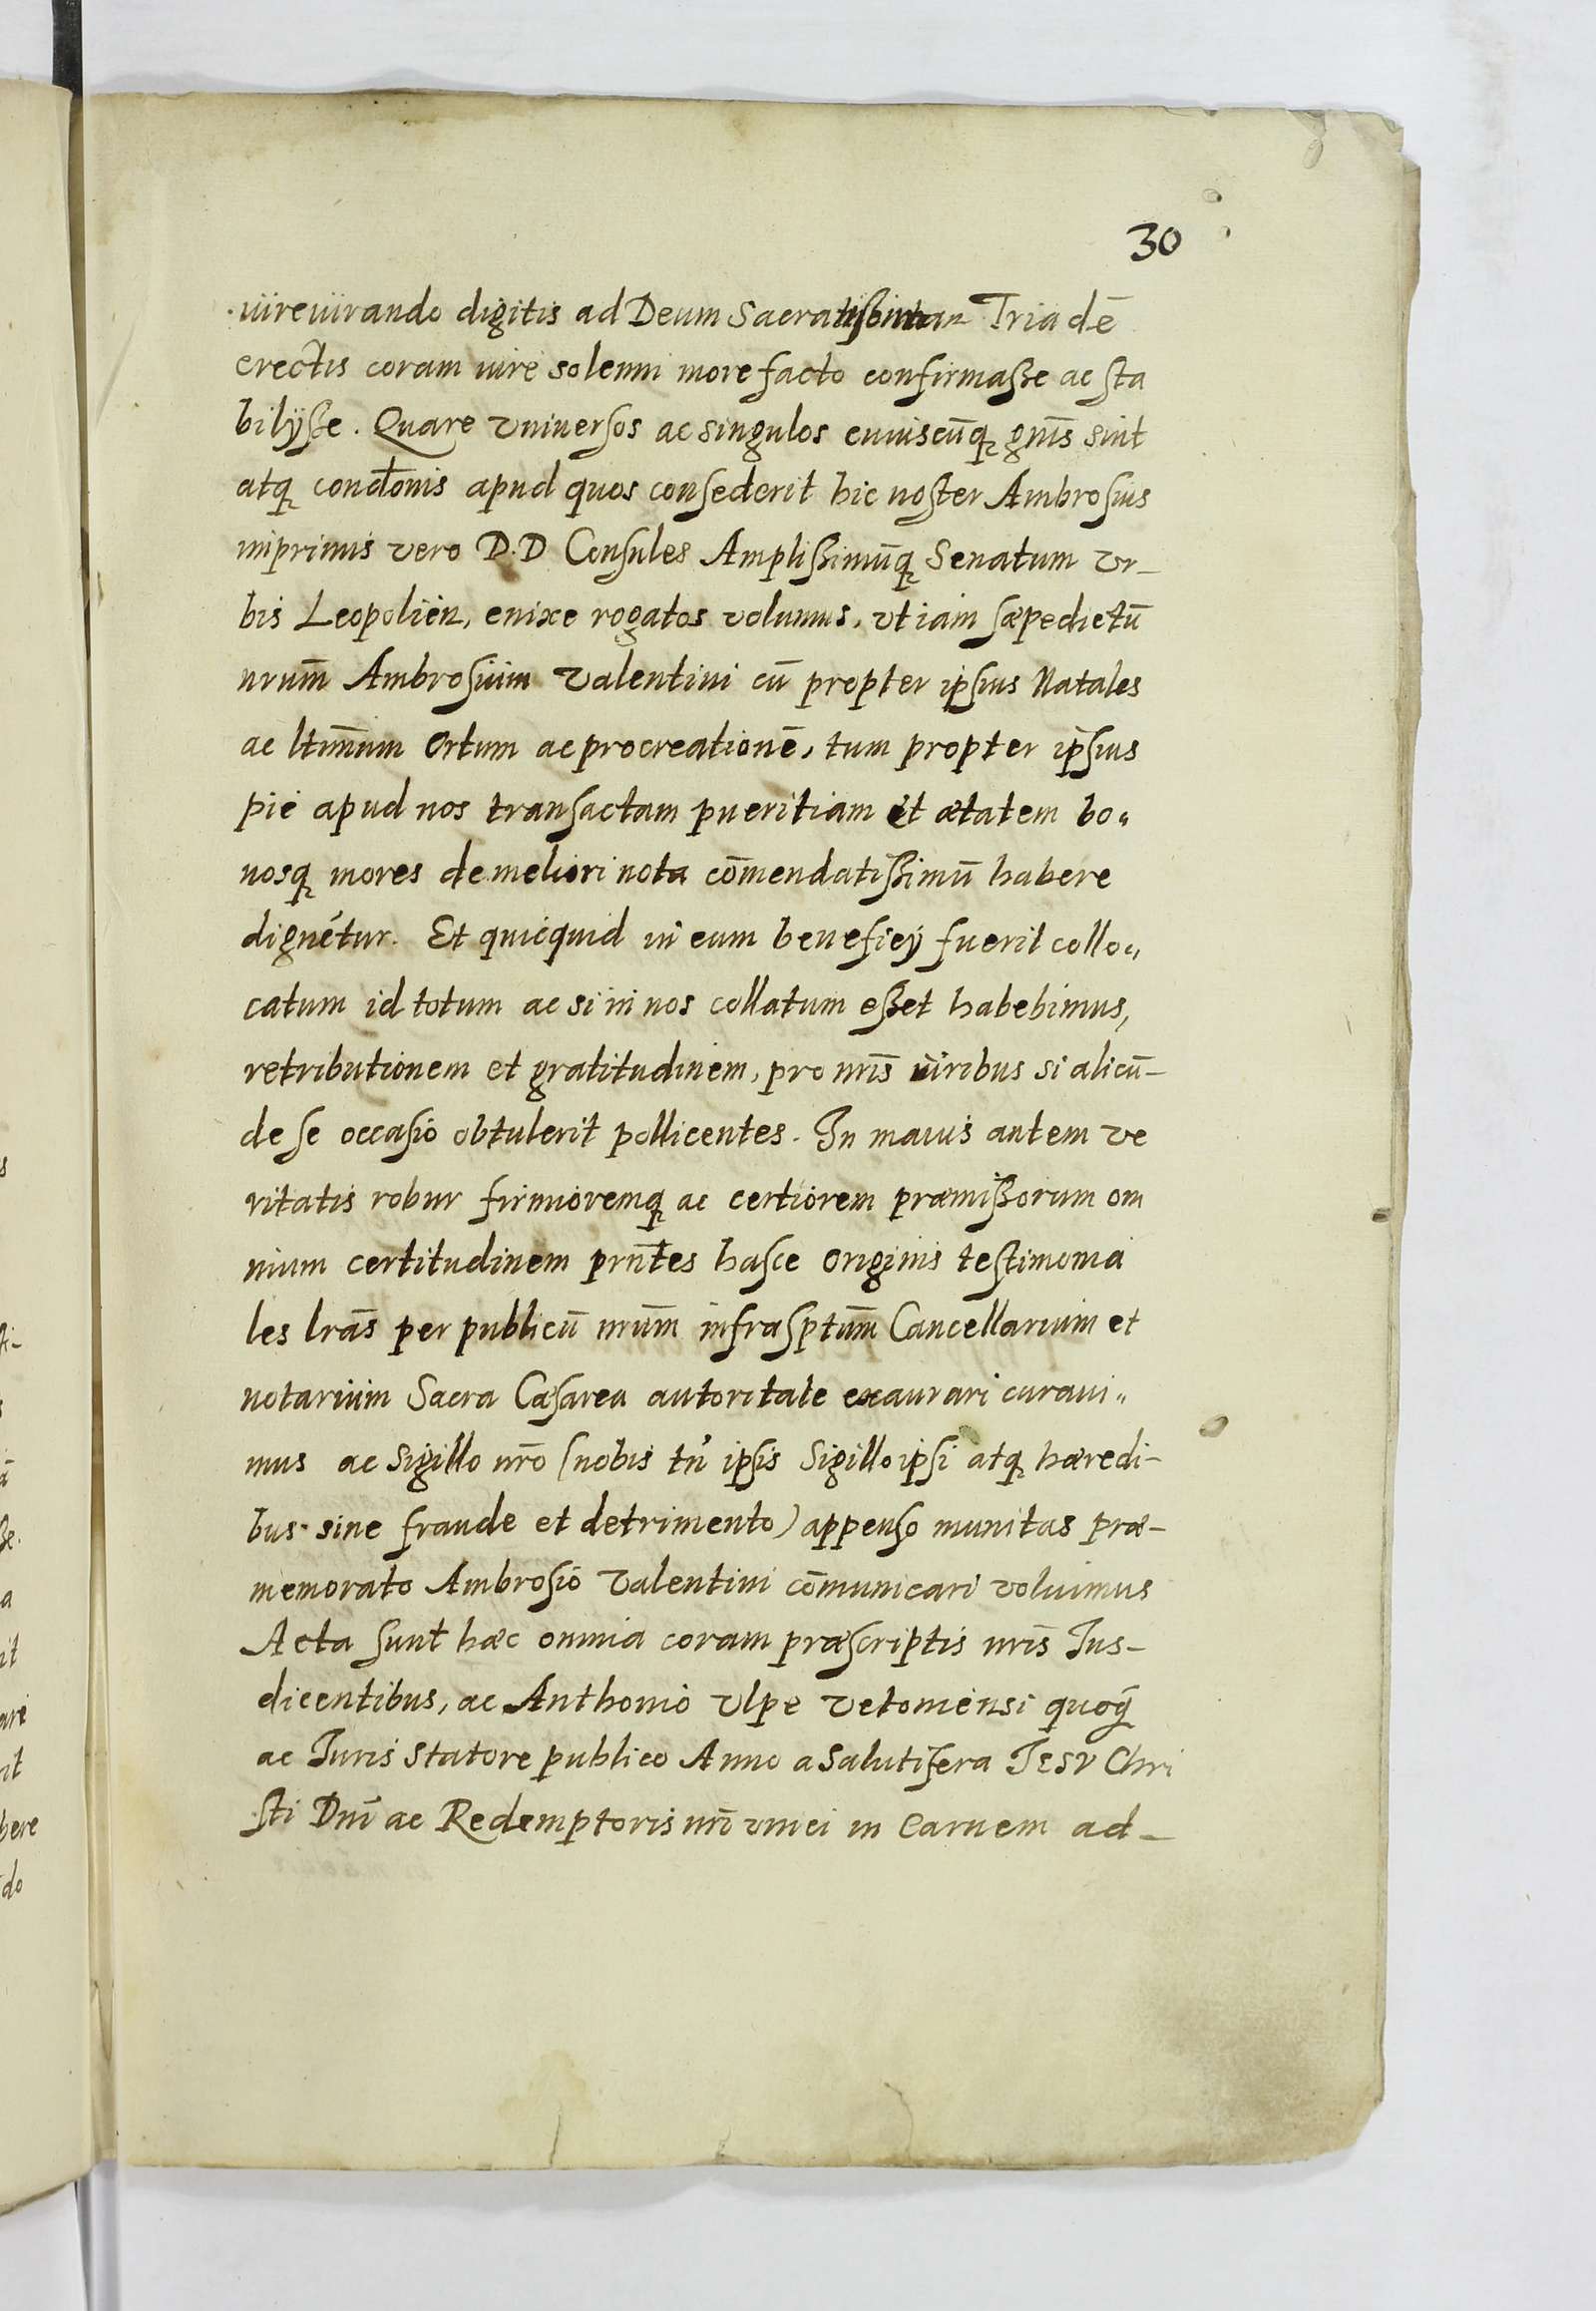 30
iureiurando digitis ad Deum Sacratissimam Triadē
erectis coram iure solenni more facto confirmaße ac sta
bilyße. Quare vniuersos ac singulos cuiuscūq gnīs sint
atq condtonis apud quos consederit hic noster Ambrosius
inprimis vero D.D Consules Amplißimūq Senatum vr-
bis Leopolien, enixe rogatos volumus, vt iam sæpedictū
nrum̄ Ambrosium Valentini cū propter ipsius Natales
ac ltim̄um Ortum ac procreationē, tum propter ipsius
pie apud nos transactam pueritiam et ætatem bo„
nosq mores de meliori nota cōmendatißimū habere
dignētur. Et quicquid in eum beneficij fuerit collo„
catum id totum ac si in nos collatum eßet habebimus,
retributionem et gratitudinem, pro nrīs viribus si alicū-
de se occasio obtulerit pollicentes. In maius autem ve
ritatis robur firmioremq ac certiorem præmißorum om
nium certitudinem prn̄tes hasce Originis testimonia
les lrās per publicū nrum̄ infrasptum̄ Cancellarium et
notarium Sacra Cæsarea autoritate exaurari curaui„
mus ac Sigillo nrō (nobis tn̄ ipsis Sigillo ipsi atq hæredi-
bus sine fraude et detrimento) appenso munitas præ-
memorato Ambrosio Valentini cōmunicari voluimus
Acta sunt hæc omnia coram præscriptis nrīs Jus-
dicentibus, ac Anthonio Vlpe Vetoniensi quoq
ac Juris Statore publico Anno a Salutifera JESV Chri
sti Dnī ac Redemptoris nrī vnici in Carnem ad-